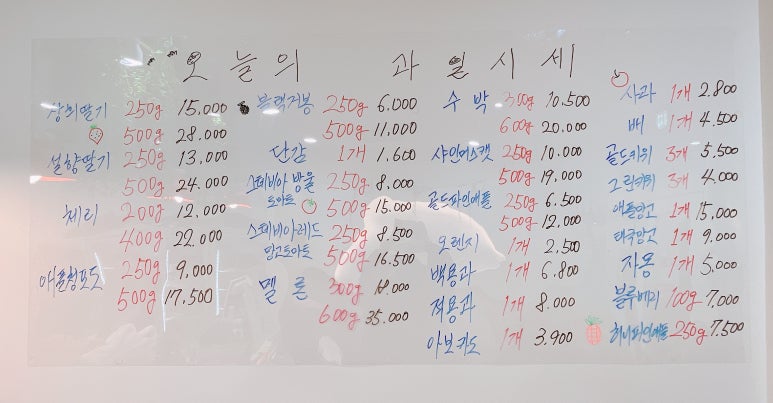 오늘의 과일시세
장희딸기 250g 15,000
500g 28.000
설향딸기 250g 13,000
500g 24.000
체리 200g 12,000
400g 22.000
애플청포도 250g 9,000
500g 17,500
블랙커봉 250g 6.000
500g 11,000
단감 1개 1.600
스테비아 방울토마토 250g 8.000
500g 15.000
스테비아레드
망고토마토 250g 8.500
500g 16.500
멜론 300g 18.000
600g 35.000
수박 300g 10.500
600g 20.000
샤인머스캣 250g 10.000
500g 19.000
골드파인애플 250g 6.500
500g 12.000
오렌지 1개 2.500
백용과 1개 6.800
적용과 1개 8.000
아보카도 1개 3.900
사과 1개 2.800
배 1개 4.500
골드키위 3개 5,500
그린키위 3개 4.000
애플망고 1개 15,000
태국망고 1개 9.000
자몽 1개 5,000
블루베리 100g 7,000
허니파인애플 250g 7.500